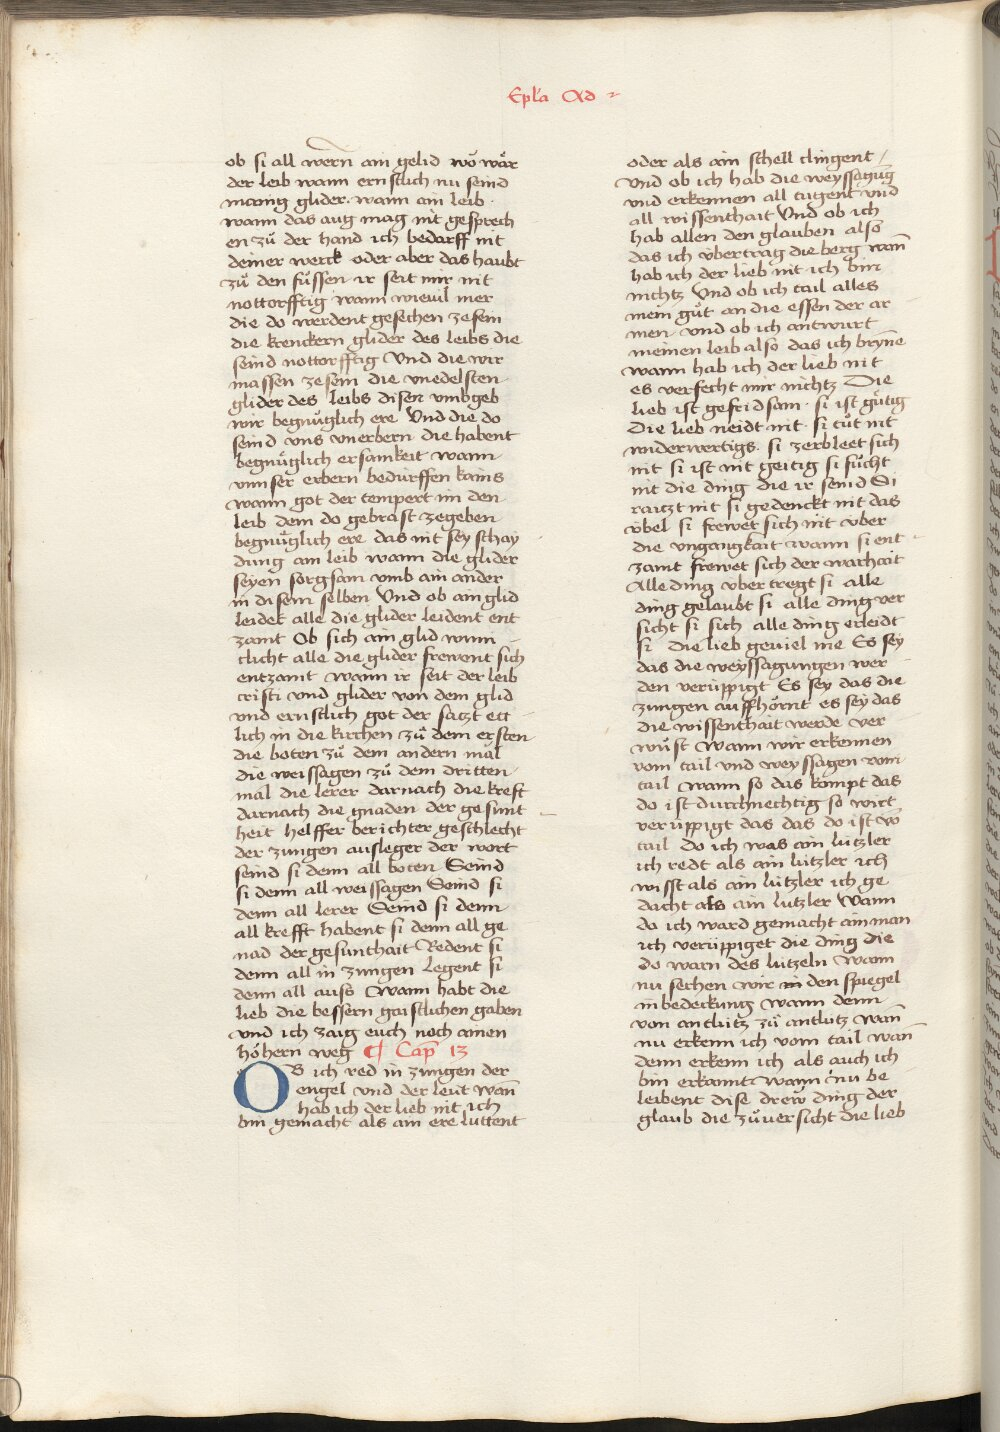 Epl'a Ad 2
ob si all wern ain gelid wo wär
der leib wann ernstlich nu seind
manig glider · wann ain leib ·
wann das aug mag nit gesprech
en zů der hand ich bedarff nit
deiner werck oder aber das haubt
zů den fůssen ir seit mir nit
nottorfftig wann wieuil mer
die do werdent gesechen ze sein
die krenckern glider des leibs die
seind nottorfftig Und die wir
massen ze sein die vnedelsten
glider des leibs disen vmbgeb
wir begnůglich ere Und die do
seind vns vnerbern die habent
begnůglich ersamkeit wann
vnnser erbern bedürffen kains
wann got der tempert im den
leib dem do gebrast zegeben
begnůglich ere das nit sey schay
dung am leib wann die glider
seyen sorgsam vmb ain ander
in disem selben Und ob ain glid
leidet alle die glider leident ent
zamt Ob sich ain glid wunn
clicht alle die glider frewent sich
entzamt wann ir seit der leib
cristi vnd glider von dem glid
vnd ernstlich got der satzt ett
lich in die kirchen zů dem ersten
die boten zů dem andern mal
die weissagen zů dem dritten
mal die lerer darnach die kreft
darnach die gnaden der gesunt
heit helffer berichter geschlecht
der zungen ausleger der wort
seind si denn all boten Seind
si denn all weissagen Seind si
denn all lerer Seind si denn
all krefft habent si denn all ge
nad der gesunthait Redent si
denn all in zungen Legent si
denn all auso Wann habt die
lieb die bessern gaistlichen gaben
vnd ich zaig euch noch ainen
höhern weg ¶ Cap 13
OB ich red in zungen der
engel vnd der leüt wañ
hab ich der lieb nit ich
bin gemacht als ain ere luttent
oder als ain schell clingent /
Vnd ob ich hab die weyssagūg
vnd erkennen all tugent vnd
all wissenthait Und ob ich
hab allen den glauben also
das ich vbertrag die berg wañ
hab ich der lieb nit ich bin
nichtz Und ob ich tail alles
mein gůt an die essen der ar
men · vnd ob ich antwurt
meinen leib also das ich brÿnne
wann hab ich der lieb nit
es verfecht mir nichtz Die
lieb ist gefridsam · si ist gůtig
Die lieb neidt nit · si tůt nit
widerwertigs · si zerbleet sich
nit si ist nit geitig si sůcht
nit die ding die ir seind Si
raitzt nit si gedenckt nit das
vbel si frewet sich nit vber
die vngangkait wann si ent
zamt frewet sich der warhait
Alle ding vbertregt si alle
ding gelaubt si alle ding ver
sicht si sich alle ding erleidt
si Die lieb geuiel nie Es sey
das die weyssagungen wer
den verüppigt Es sey das die
zungen auffhörnt es sey das
die wissenthait werde ver
wůst Wann wir erkennen
vom tail vnd weyssagen vom
tail wann so das kompt das
do ist durchnechtig so wirt
verüppigt das das do ist võ
tail Do ich was ain lützler
ich redt als ain lützler ich
wisst als ain lützler ich ge
dacht als ain lützler Wann
do ich ward gemacht ain man
ich verüppiget die ding die
do warn des lützeln Wann
nu sechen wir in den spiegel
in bedeckung wann denn
von antlütz zů antlütz wañ
nu erkenn ich vom tail wañ
denn erkenn ich als auch ich
bin erkannt wann nu be
leibent dise drew ding der
glaub die zůuersicht die lieb